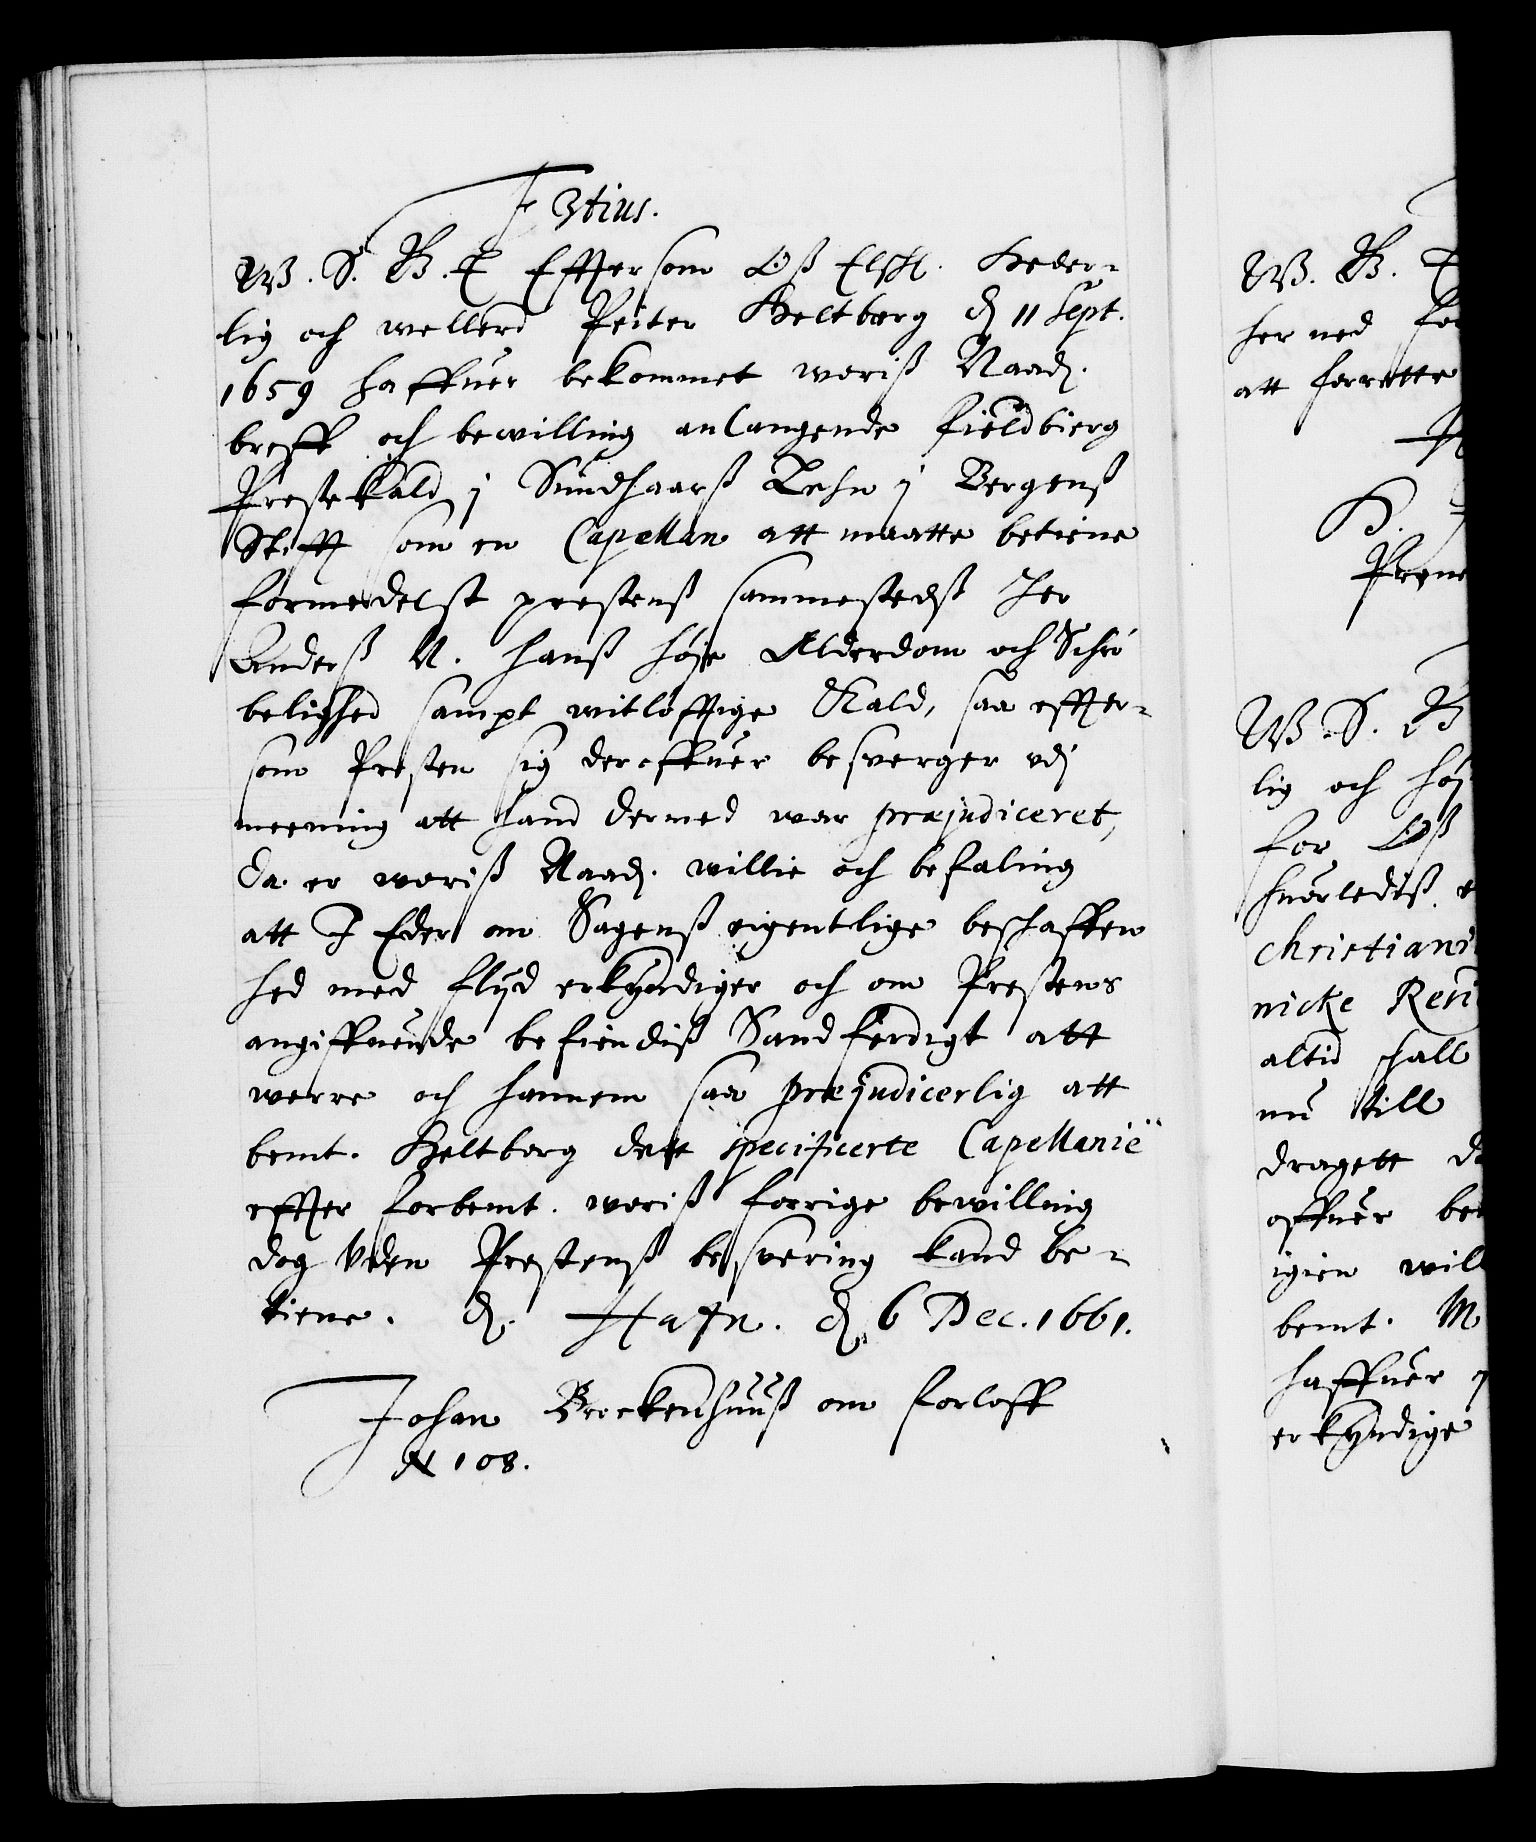 Tertius.
W. S. B. T Effterson Oß Elschl. Heder-
lig och wellerd Peiter Heltberg d 11 Sept.
1659 haffuer bekommet woriß Naad.
breff och bewilling anlangende Fieldbierg
Prestekald j Sundhaarß Lehn j Bergenß
Stifft som en Capellan att maatte betiene
formedelst prestenß sammestedß Her
Anderß N. hanß höje Alderdom och Schrö
belighed sampt witlöfftige Kald, saa effter-
som Presten sig deroffuer besverger vdj
meening att hand dermed war præjudiceret,
Da er woriß Naad. willie och befaling
att I Eder om Sagenß eigentlige beschaffen
hed med flijd erkyndiger och om Prestens
angiffuende befiendiß Sandferdigt att
werre och hannem saa præjudicerlig att
bemt. Heltberg dett specificerte Capellanie
effter forbemt. woriß forrige bewilling
dog Uden Prestenß besvering kand be-
tiene. d. Hafn. d. 6 Dec. 1661.
Johan Brockenhuuß om forloff
N 108.
W. B. T
her ned
att forrette
H.
W. S. B
lig och höj
for Oß
huorlediß
christiani
nicke Resi
altid schall
nu till
dragett
offuer
igien will
bemt. M
haffuer
erkyndige